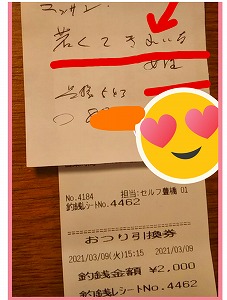 コンサン.
若くてきれいな
女性
No.4184 担当:セルフ豊橋 01
釣銭レシートNo.4462
おつり引換券
2021/03/09(火)15:15 2021/03/09
釣銭金額 ¥2,000
釣銭レシートNo.4462